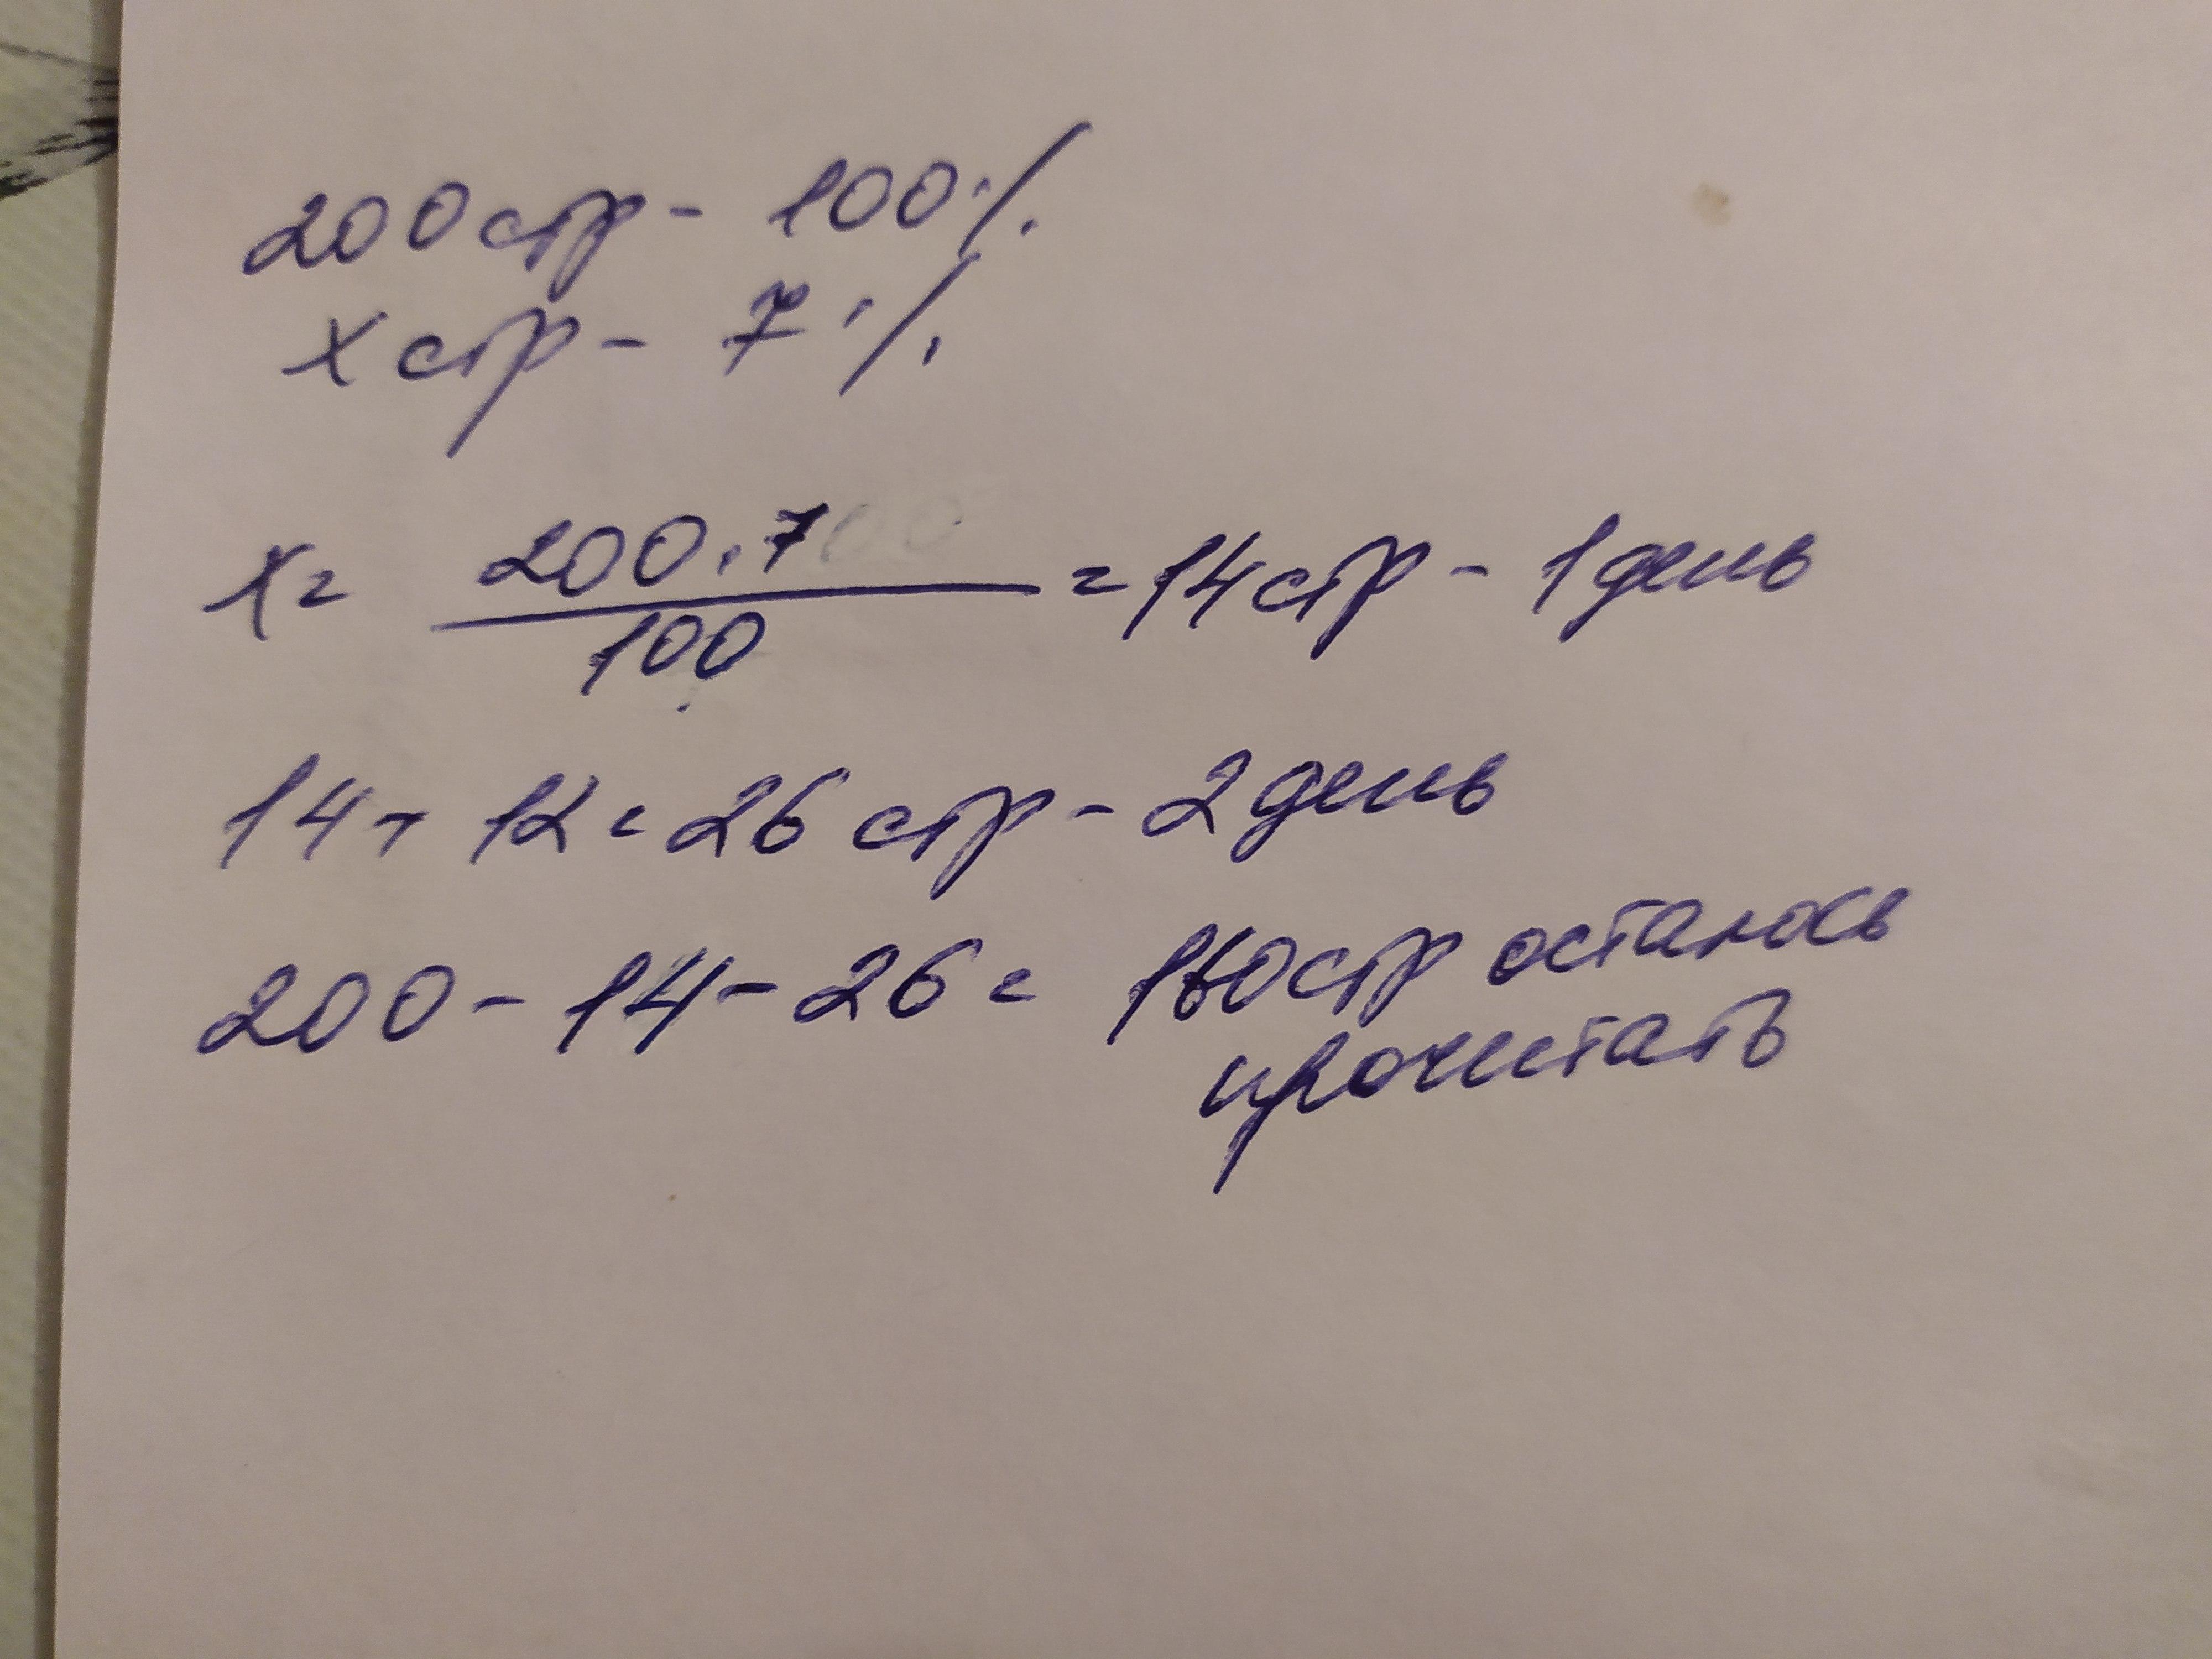 200 стр - 100%
x стр - 7%
x = 200 · 7 / 100 = 14 стр - 1 день
14 + 12 = 26 стр - 2 день
200 - 14 - 26 = 160 стр осталось
прочитать